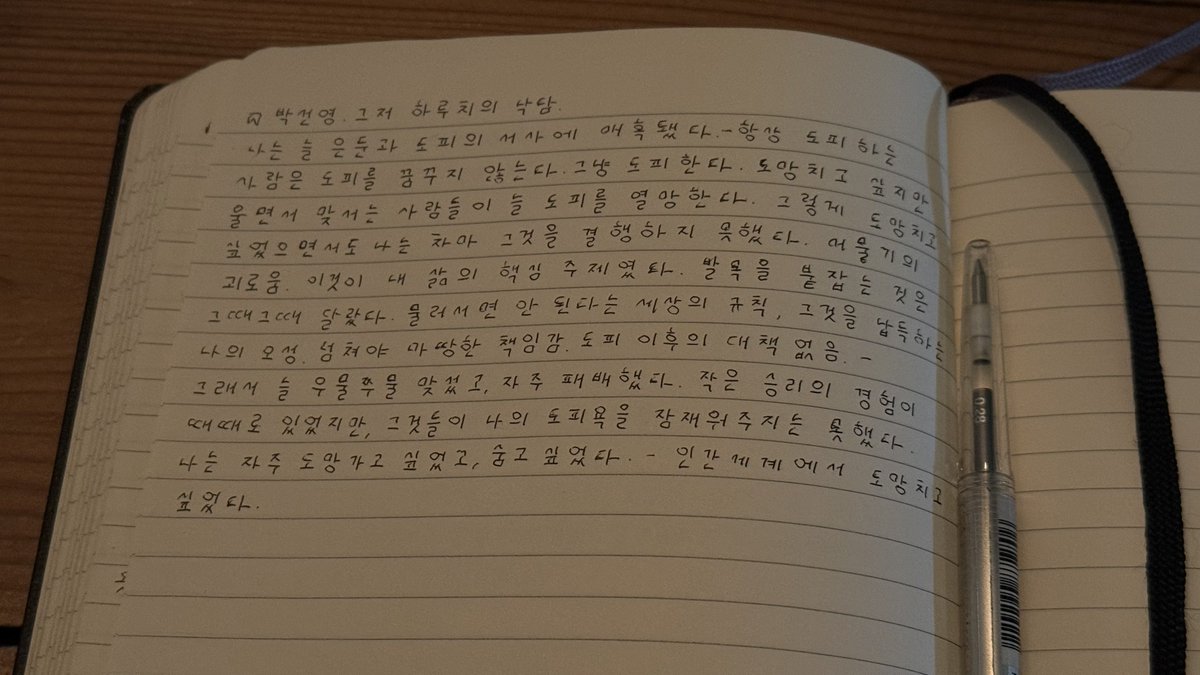 박선영. 그저 하루치의 낙담.
나는 늘 은둔과 도피의 서사에 매혹됐다. - 항상 도피하는
사람은 도피를 꿈꾸지 않는다. 그냥 도피한다. 도망치고 싶지만
울면서 맞서는 사람들이 늘 도피를 열망한다. 그렇게 도망치고
싶었으면서도 나는 차마 그것을 결행하지 못했다. 머물기의
괴로움. 이것이 내 삶의 핵심 주제였다. 발목을 붙잡는 것은
그때그때 달랐다. 물러서면 안 된다는 세상의 규칙, 그것을 납득하는
나의 오성. 넘쳐야 마땅한 책임감. 도피 이후의 대책 없음. -
그래서 늘 우물쭈물 맞섰고, 자주 패배했다. 작은 승리의 경험이
때때로 있었지만, 그것들이 나의 도피욕을 잠재워주지는 못했다.
나는 자주 도망가고 싶었고, 숨고 싶었다. - 인간세계에서 도망치고
싶었다.
0.28